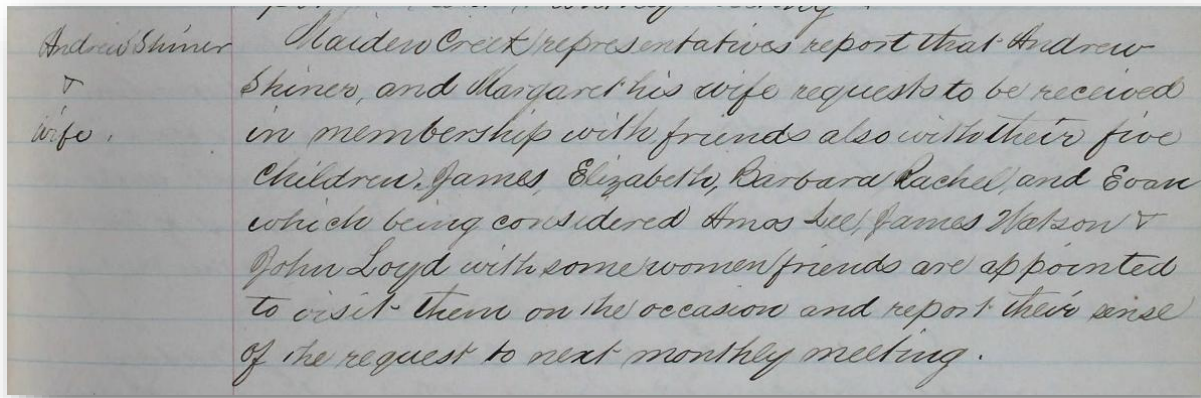 Andrew Shiner
&
wife.
Maiden Creek representatives report that Andrew
Shiner, and Margaret his wife requests to be received
in membership with friends also with their five
Children, James, Elizabeth, Barbara Rachel, and Evan
which being considered Amos Lee, James Watson &
John Loyd with some women friends are appointed
to visit them on the occasion and report their sense
of the request to next monthly meeting.